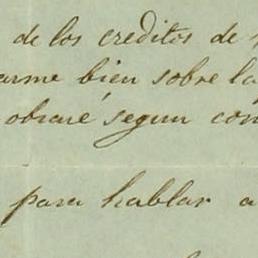 de los creditos de
arme bien sobre la
obraré segun con
para hablar a